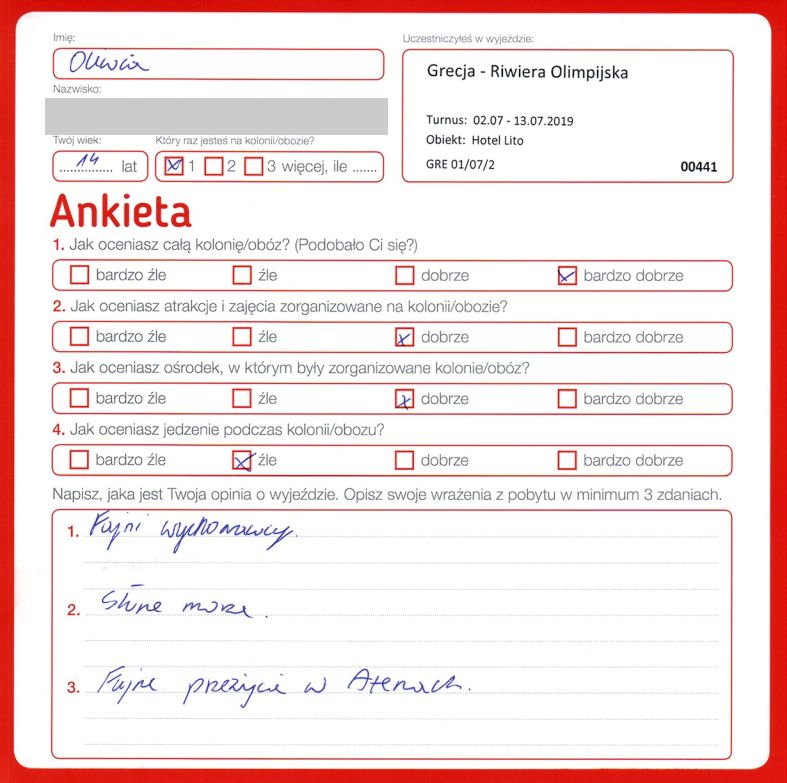 Imię:
Oliwia
Nazwisko:
Twój wiek:
14 lat
Który raz jesteś na kolonii/obozie?
1 2 3 więcej, ile .......
Uczestniczyłeś w wyjeździe:
Grecja - Riwiera Olimpijska
Turnus: 02.07 - 13.07.2019
Obiekt: Hotel Lito
GRE 01/07/2 00441
Ankieta
1. Jak oceniasz całą kolonię/obóz? (Podobało Ci się?)
bardzo źle źle dobrze bardzo dobrze
2. Jak oceniasz atrakcje i zajęcia zorganizowane na kolonii/obozie?
bardzo źle źle dobrze bardzo dobrze
3. Jak oceniasz ośrodek, w którym były zorganizowane kolonie/obóz?
bardzo źle źle dobrze bardzo dobrze
4. Jak oceniasz jedzenie podczas kolonii/obozu?
bardzo źle źle dobrze bardzo dobrze
Napisz, jaka jest Twoja opinia o wyjeździe. Opisz swoje wrażenia z pobytu w minimum 3 zdaniach.
1. Fajni wychowawcy.
2. Słone morze.
3. Fajne przeżycie w Atenach.